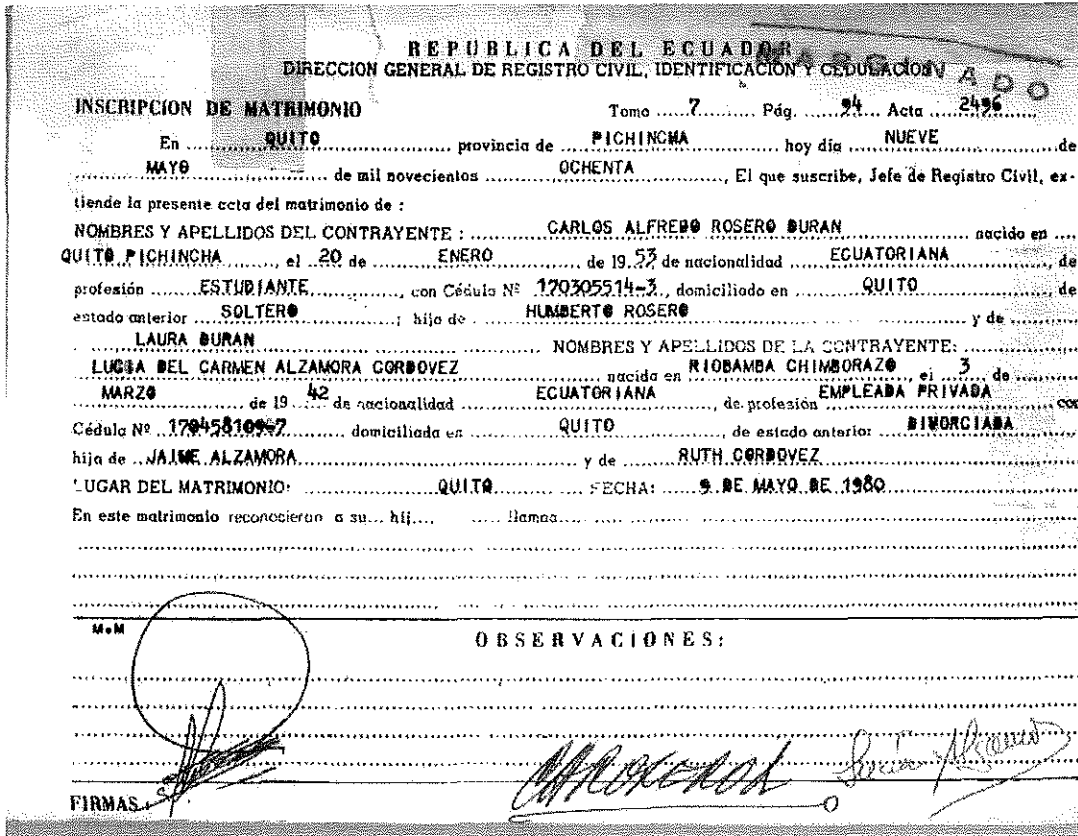 REPUBLICA DEL ECUADOR
DIRECCION GENERAL DE REGISTRO CIVIL, IDENTIFICACION Y CEDULACION
MARGINADO
INSCRIPCION DE MATRIMONIO Tomo ......7.......... Pág. ......94.... Acta .....2496
En ...........QUITO...................... provincia de ......PICHINCHA........... hoy día .......NUEVE.......................de
.............MAYO............... de mil novecientos .............OCHENTA......................., El que suscribe, Jefe de Registro Civil, ex-
tiende la presente acta del matrimonio de :
NOMBRES Y APELLIDOS DEL CONTRAYENTE : ............CARLOS ALFREDO ROSERO DURAN.................... nacido en ....
QUITO PICHINCHA........, el ..20 de ...........ENERO................ de 19.53 de nacionalidad .....ECUATORIANA..............., de
profesión ........ESTUDIANTE............, con Cédula Nº .170305514-3., domiciliado en ...........QUITO....................... de
estado anterior .....SOLTERO..............; hijo de ........HUMBERTO ROSERO............................................ y de ..........
........LAURA DURAN............................ NOMBRES Y APELLIDOS DE LA CONTRAYENTE: ...............
...LUCIA DEL CARMEN ALZAMORA CORDOVEZ............ nacida en .....RIOBAMBA CHIMBORAZO....., el ..3.. de .........
.....MARZO............. de 19 ..42 de nacionalidad ..........ECUATORIANA..............., de profesión ....EMPLEADA PRIVADA...... con
Cédula Nº .170458109-7....... domiciliada en .............QUITO................., de estado anterior ..DIVORCIADA..........
hija de ..JAIME ALZAMORA.................................... y de .......RUTH CORDOVEZ.............................................
LUGAR DEL MATRIMONIO: ..................QUITO........... FECHA: ......9 DE MAYO DE 1980...........................
En este matrimonio reconocieron a su... hij.... ..... llama.....
M.M
OBSERVACIONES:
FIRMAS.: